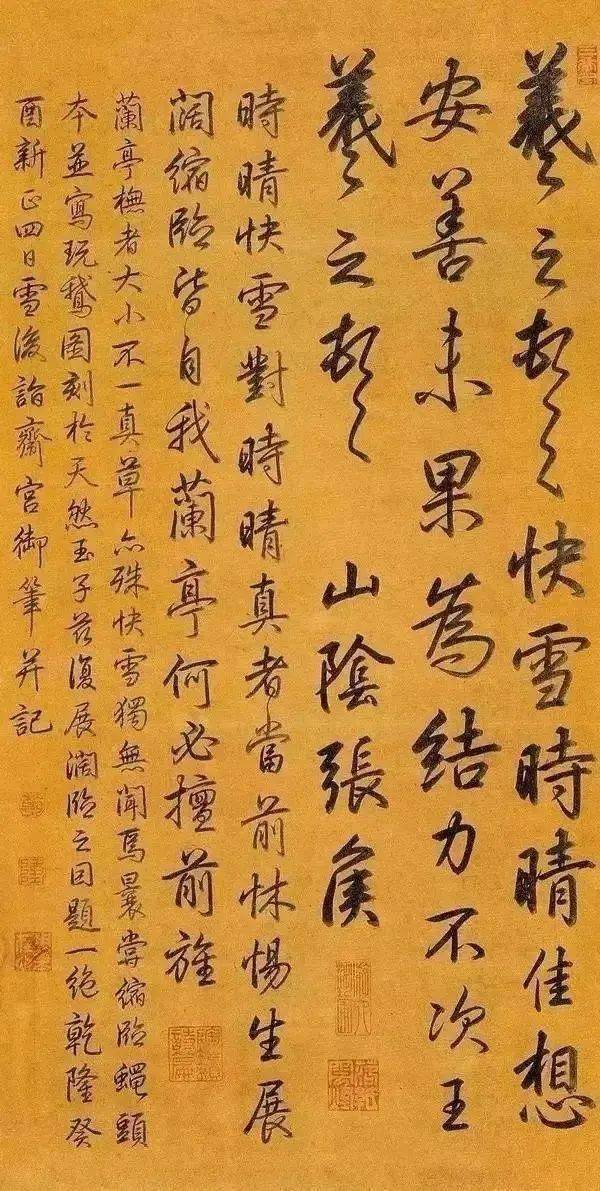 羲之頓首快雪時晴佳想
安善未果為結力不次王
羲之頓首 山陰張侯
時晴快雪對時晴真者當前怵惕生展
闊縮臨皆自我蘭亭何必擅前旌
蘭亭橅者大小不一真草亦殊快雪獨無聞焉曩嘗縮臨蠅頭
本並寫玩鵝圖刻於天然玉子茲復展濶臨之因題一絕乾隆癸
酉新正四日雪後詣齋宮御筆并記